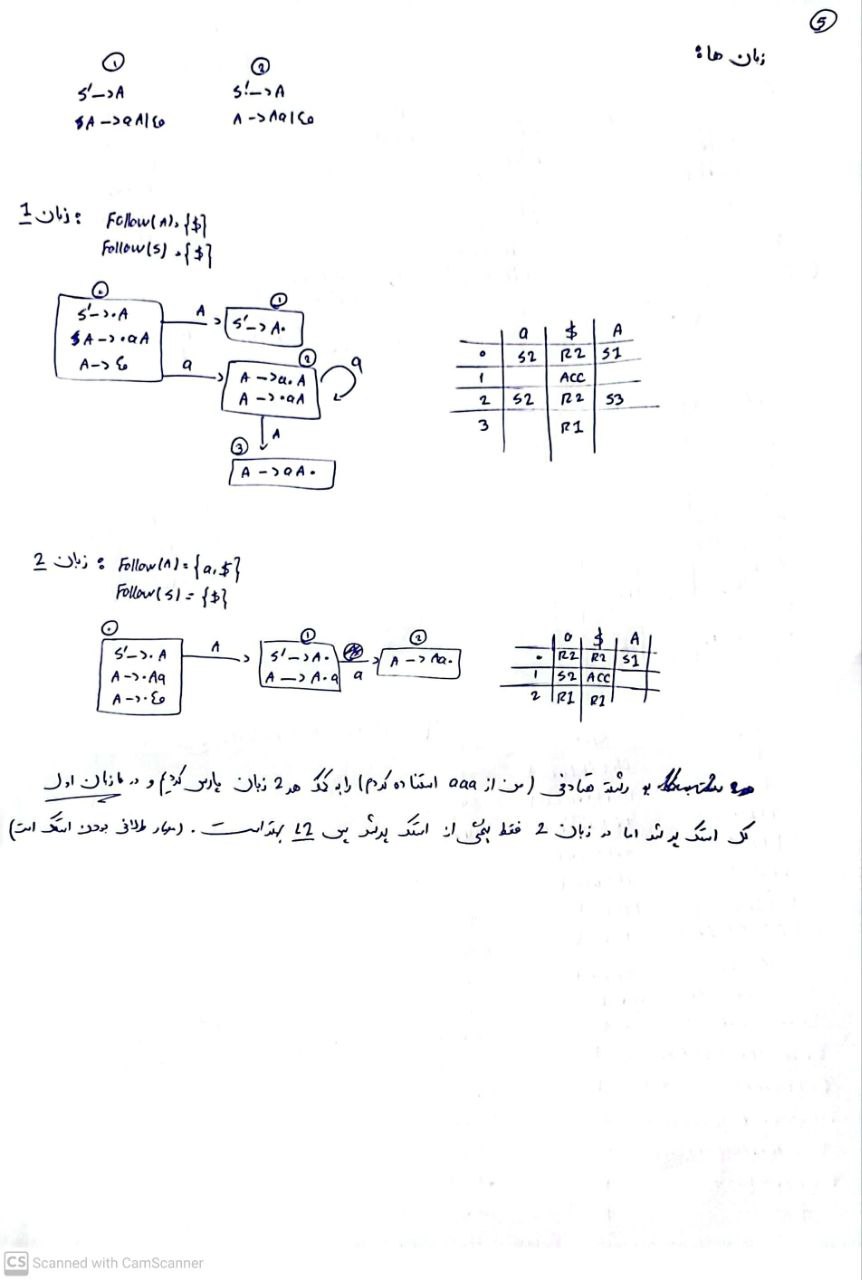 5
زبان ها:
① ②
S'->A S'->A
A->aA|ε0 A->Aa|ε0
زبان 1: Follow(A)={$}
Follow(S)={$}
0
S'->.A
A->.aA
A->ε0
A
a
1
S'->A.
2
A->a.A
A->.aA
a
A
3
A->aA.
a $ A
0 S2 R2 S1
1 ACC
2 S2 R2 S3
3 R1
زبان 2: Follow(A)={a,$}
Follow(S)={$}
0
S'->.A
A->.Aa
A->.ε0
A
1
S'->A.
A->A.a
a
2
A->Aa.
a $ A
0 R2 R2 S1
1 S2 ACC
2 R1 R1
رشته تصادفی (من از aaa استفاده کردم) را به کمک هر 2 زبان پارس کردیم و در زبان اول
کل استک پر شد اما در زبان 2 فقط بخشی از استک پر شد پس L2 بهتر است. (معیار طلافی بودن استک است)
CS Scanned with CamScanner